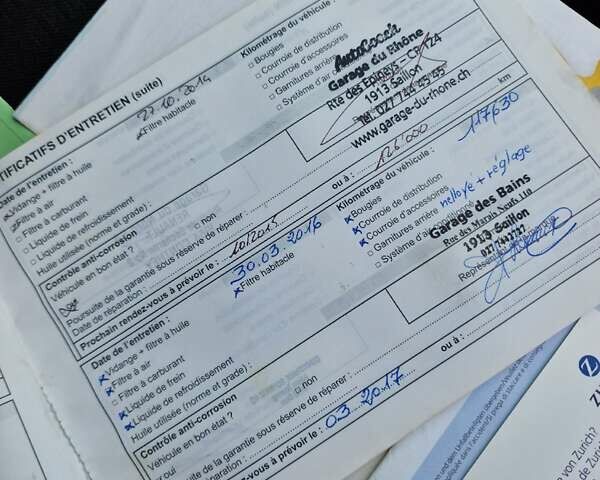 CERTIFICATIFS D'ENTRETIEN (suite)
Date de l'entretien : 27.10.2014
Vidange + filtre à huile
Filtre à air
Filtre habitacle
Filtre à carburant
Liquide de frein
Liquide de refroidissement
Huile utilisée (norme et grade) :
Kilométrage du véhicule :
Bougies
Courroie de distribution
Courroie d'accessoires
Garnitures arrière
Système d'air
AutoCoach
Garage du Rhône
Rte des Epineys - CP 124
1913 Saillon
Tél. 027 744 45 45
www.garage-du-rhone.ch
Contrôle anti-corrosion
Véhicule en bon état ?
non
Poursuite de la garantie sous réserve de réparer :
Date de réparation :
Prochain rendez-vous à prévoir le : 10/2015 ou à : 126'000 km
Date de l'entretien : 30.03.2016
Vidange + filtre à huile
Filtre à air
Filtre habitacle
Filtre à carburant
Liquide de frein
Liquide de refroidissement
Huile utilisée (norme et grade) :
Kilométrage du véhicule : 117630
Bougies
Courroie de distribution
Courroie d'accessoires
Garnitures arrière nettoyé + réglage
Système d'air
Garage des Bains
1913 Saillon
Contrôle anti-corrosion
Véhicule en bon état ?
oui
non
Poursuite de la garantie sous réserve de réparer :
Date de réparation :
Prochain rendez-vous à prévoir le : 03.2017 ou à :